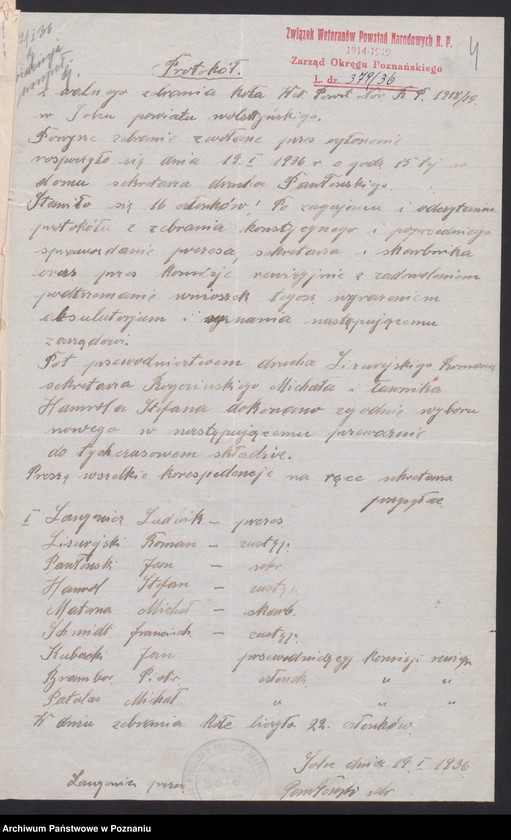 Związek Weteranów Powstań Narodowych R. P.
1914-1919
Zarząd Okręgu Poznańskiego
L. dz. 379/36
4
Protokół.
z walnego zebrania koła Wet. Powst. Nar. R. P. 1918/19.
w powiatu wolsztyńskiego.
Powyższe zebranie zwołane przez ogłoszenie
rozpoczęło się dnia 19. I 1936 r o godz 15 tej w
domu sekretarza druha Pawłowskiego.
Stawiło się 16 członków! Po zagajeniu i odczytaniu
protokółu z zebrania i poprzedniego
sprawozdanie prezesa, sekretarza i skarbnika
oraz przez komisję rewizyjnie z zadwoleniem
podtrzymanie wniosek wyrażeniem
absolutorjum i uznania następującemu
zarządowi.
Pot przewodnictwem druha Lisewskiego Romana
sekretarza Michała i ławnika
Stefana dokonano zgodnie wyboru
nowego w następującemu przeważnie
do tychczasowem składzie.
Proszę wszelkie korespedencje na ręce sekretarza
przysyłać
I Ludwik – prezes
Roman – zastęp.
Jan – sekr.
Stefan – zastęp.
Michał – skarb.
Schmidt – zastęp.
Kubacki Jan przewodniczący Komisji rewizyj.
Brambor Piotr członek " "
Michał " " "
W dniu zebrania Koło liczyło 22 członków.
dnia 19. I 1936
prezes sekr
Archiwum Państwowe w Poznaniu